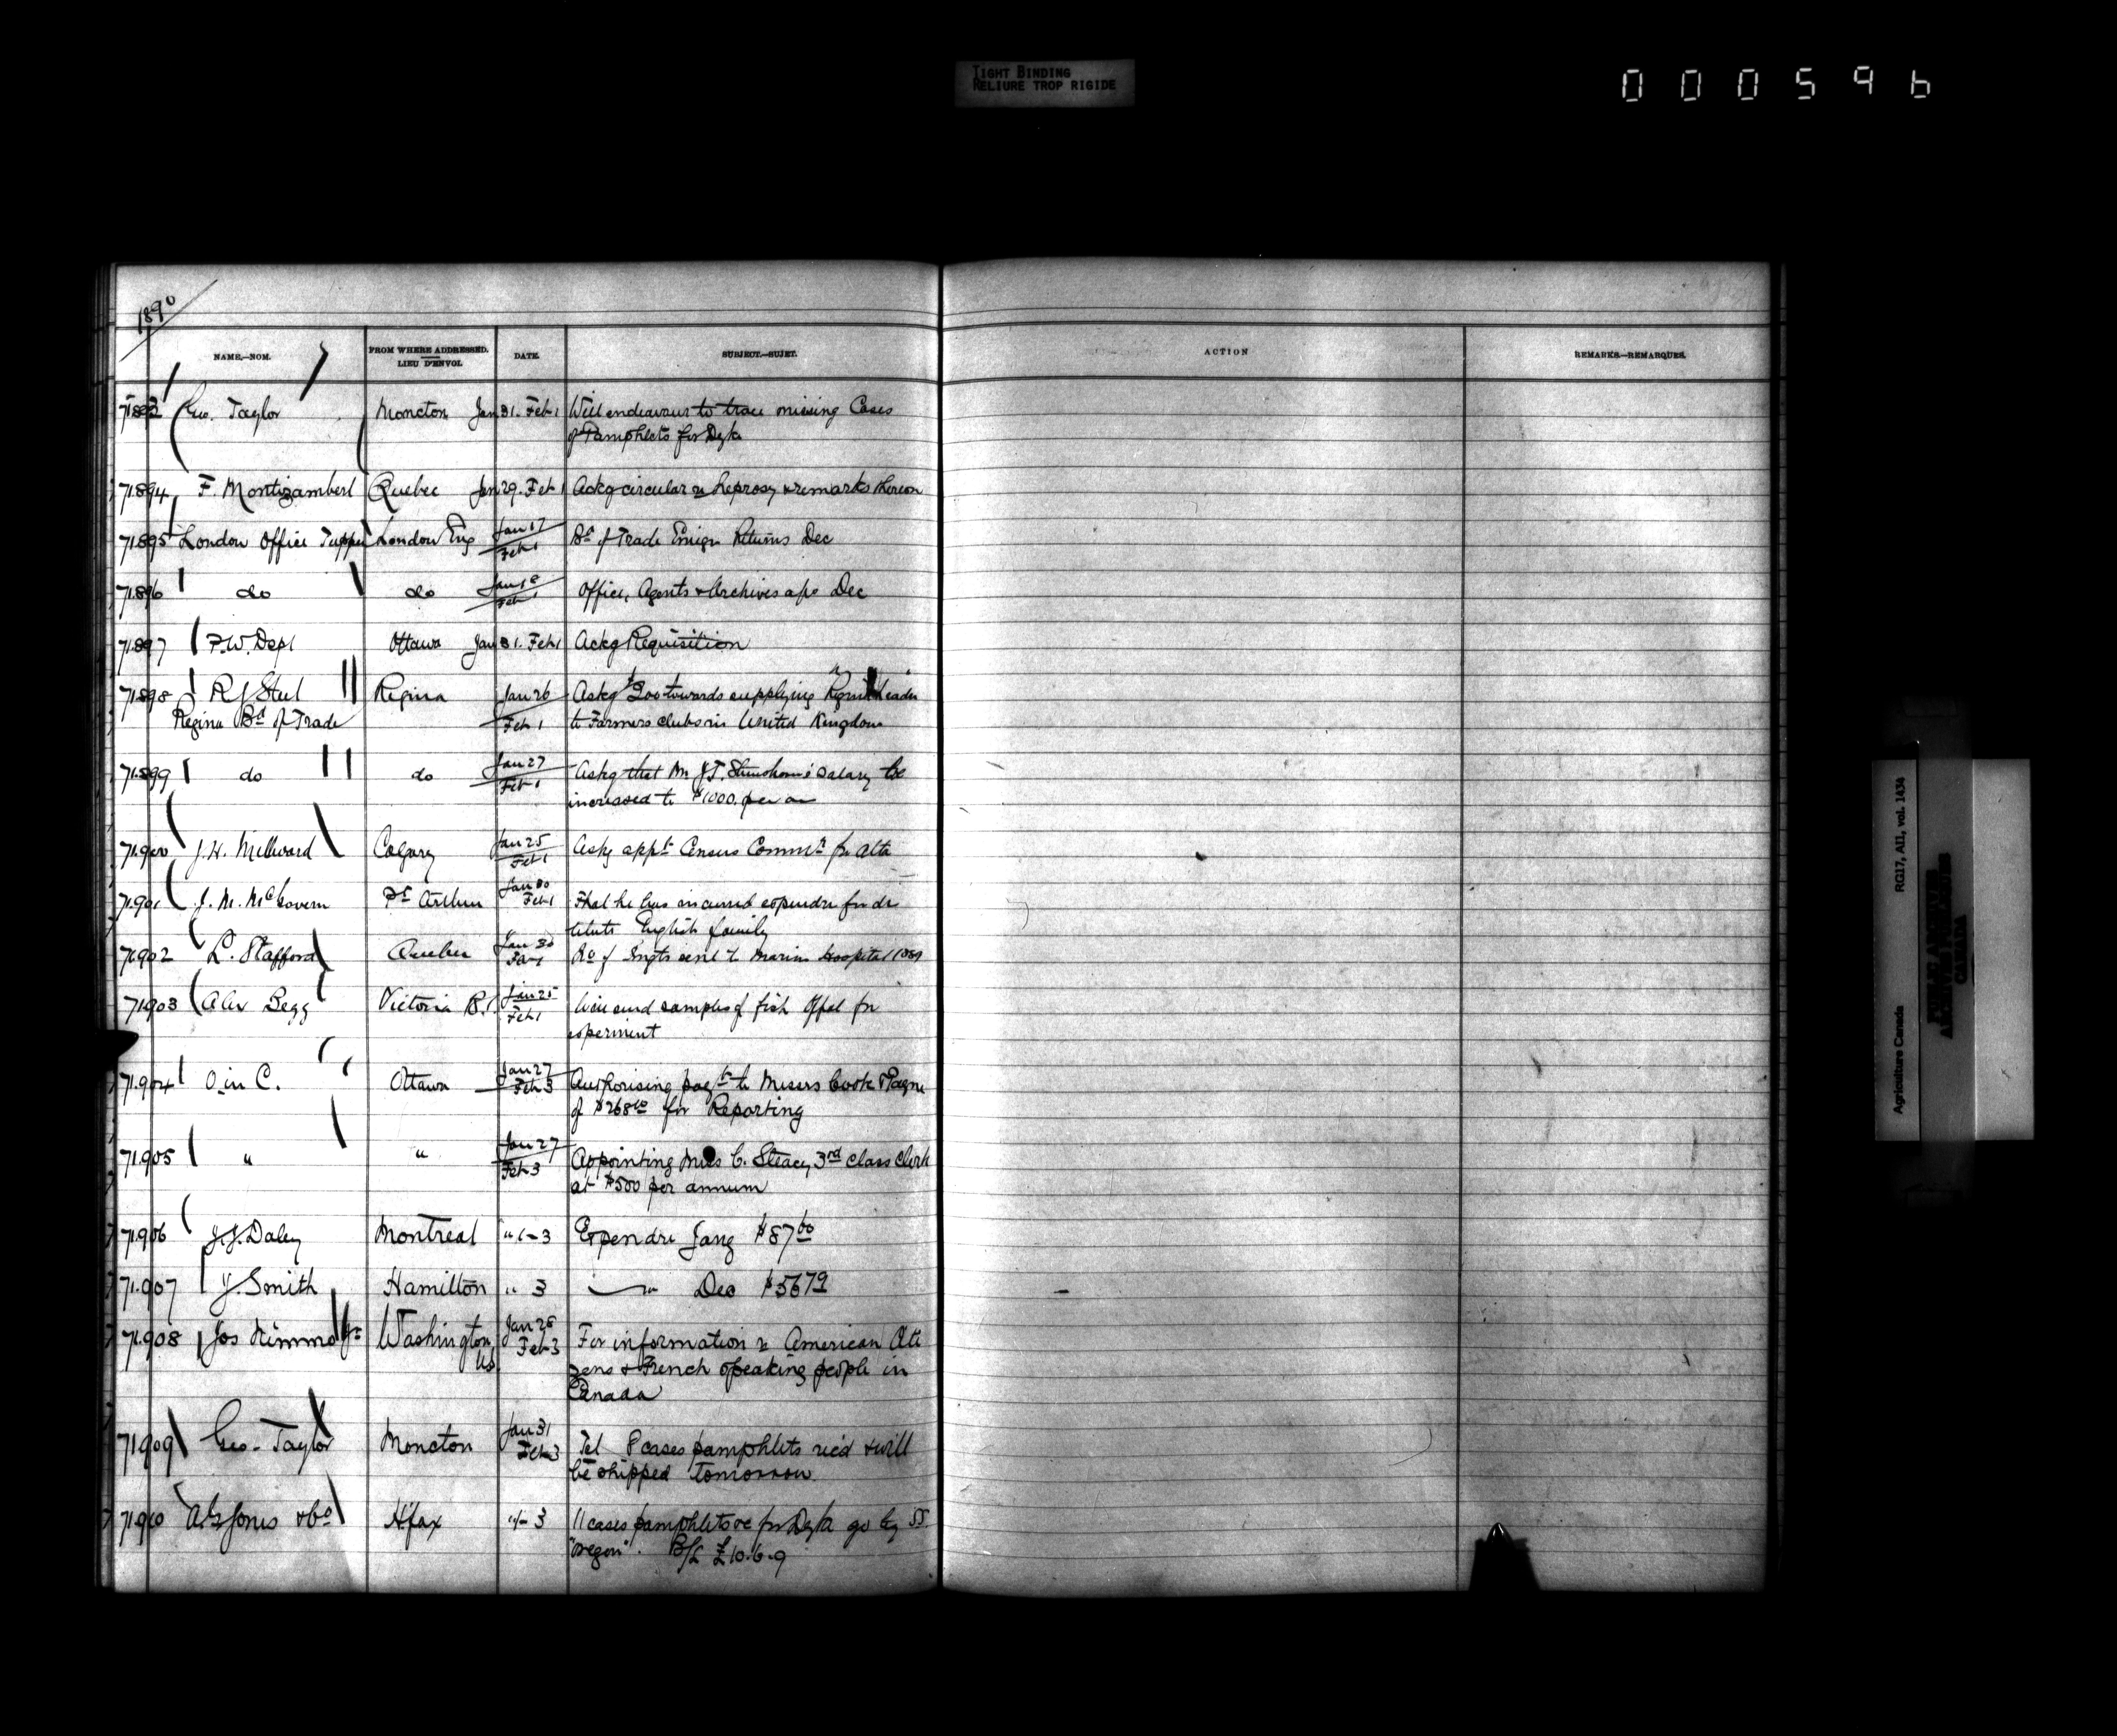 TIGHT BINDING
RELIURE TROP RIGIDE
000596
1890
NAME.—NOM.
FROM WHERE ADDRESSED.
LIEU D'ENVOI.
DATE.
SUBJECT.—SUJET.
ACTION
REMARKS—REMARQUES.
Geo. Taylor Moncton Jan 31. Feb 1 Will endeavour to trace missing Cases
of Pamphlets for Dyke
71.894 F. Montizambert Quebec Jan 29. Feb 1 Ackg circular re Leprosy & remarks thereon
71.895 London Office Tupper London Eng Jan 17 Feb 1 Bd of Trade Emign Returns Dec
71.896 do do Feb 1 Office, Agents & Archives a/cs Dec
71.897 P.W. Dept Ottawa Jan 31. Feb 1 Ackg Requisition
71.898 Regina Jan 26 Askg $200 towards supplying Leader
Regina Bd of Trade Feb 1 to Farmers clubs in United Kingdom
71.899 do do Jan 27 Feb 1 Askg that Mr J.T. salary be
increased to $1000. per an
71.900 J.H. Millward Calgary Jan 25 Feb 1 Askg appt Census Commr for Alta
71.901 J. M. McGovern Pt Arthur Jan 30 Feb 1 That he has incurred expendre for des
titute English family
71.902 L. Stafford Quebec Jan 30 Feb 1 No of Imgts sent to Marine Hospital 1889
71.903 Alex Begg Victoria B.C. Jan 25 Feb 1 Will send samples of fish Offal for
experiment
71.904 O in C. Ottawa Jan 27 Feb 3 Authorising payt to Messrs Cook & Payne
of $268 for Reporting
71.905 " " Jan 27 Feb 3 Appointing Miss C. Steacy 3rd class Clerk
at $500 per annum
71.906 J.J. Daley Montreal " 1-3 Expendre Jany $87.60
71.907 J. Smith Hamilton " 3 " Dec $56.79
71.908 Jos Nimmo Jr Washington Jan 28 Feb 3 For information re American Citi
US. zens & French speaking people in
Canada
71.909 Geo. Taylor Moncton Jan 31 Feb 3 Tel 8 cases pamphlets recd & will
be shipped tomorrow
71.910 A.G. Jones & Co Hfax " 3 11 cases pamphlets &c for Dyke go by SS.
"Oregon". B/L £10.6.9
Agriculture Canada
RG17, AI1, vol. 1434
PUBLIC ARCHIVES
ARCHIVES PUBLIQUES
CANADA